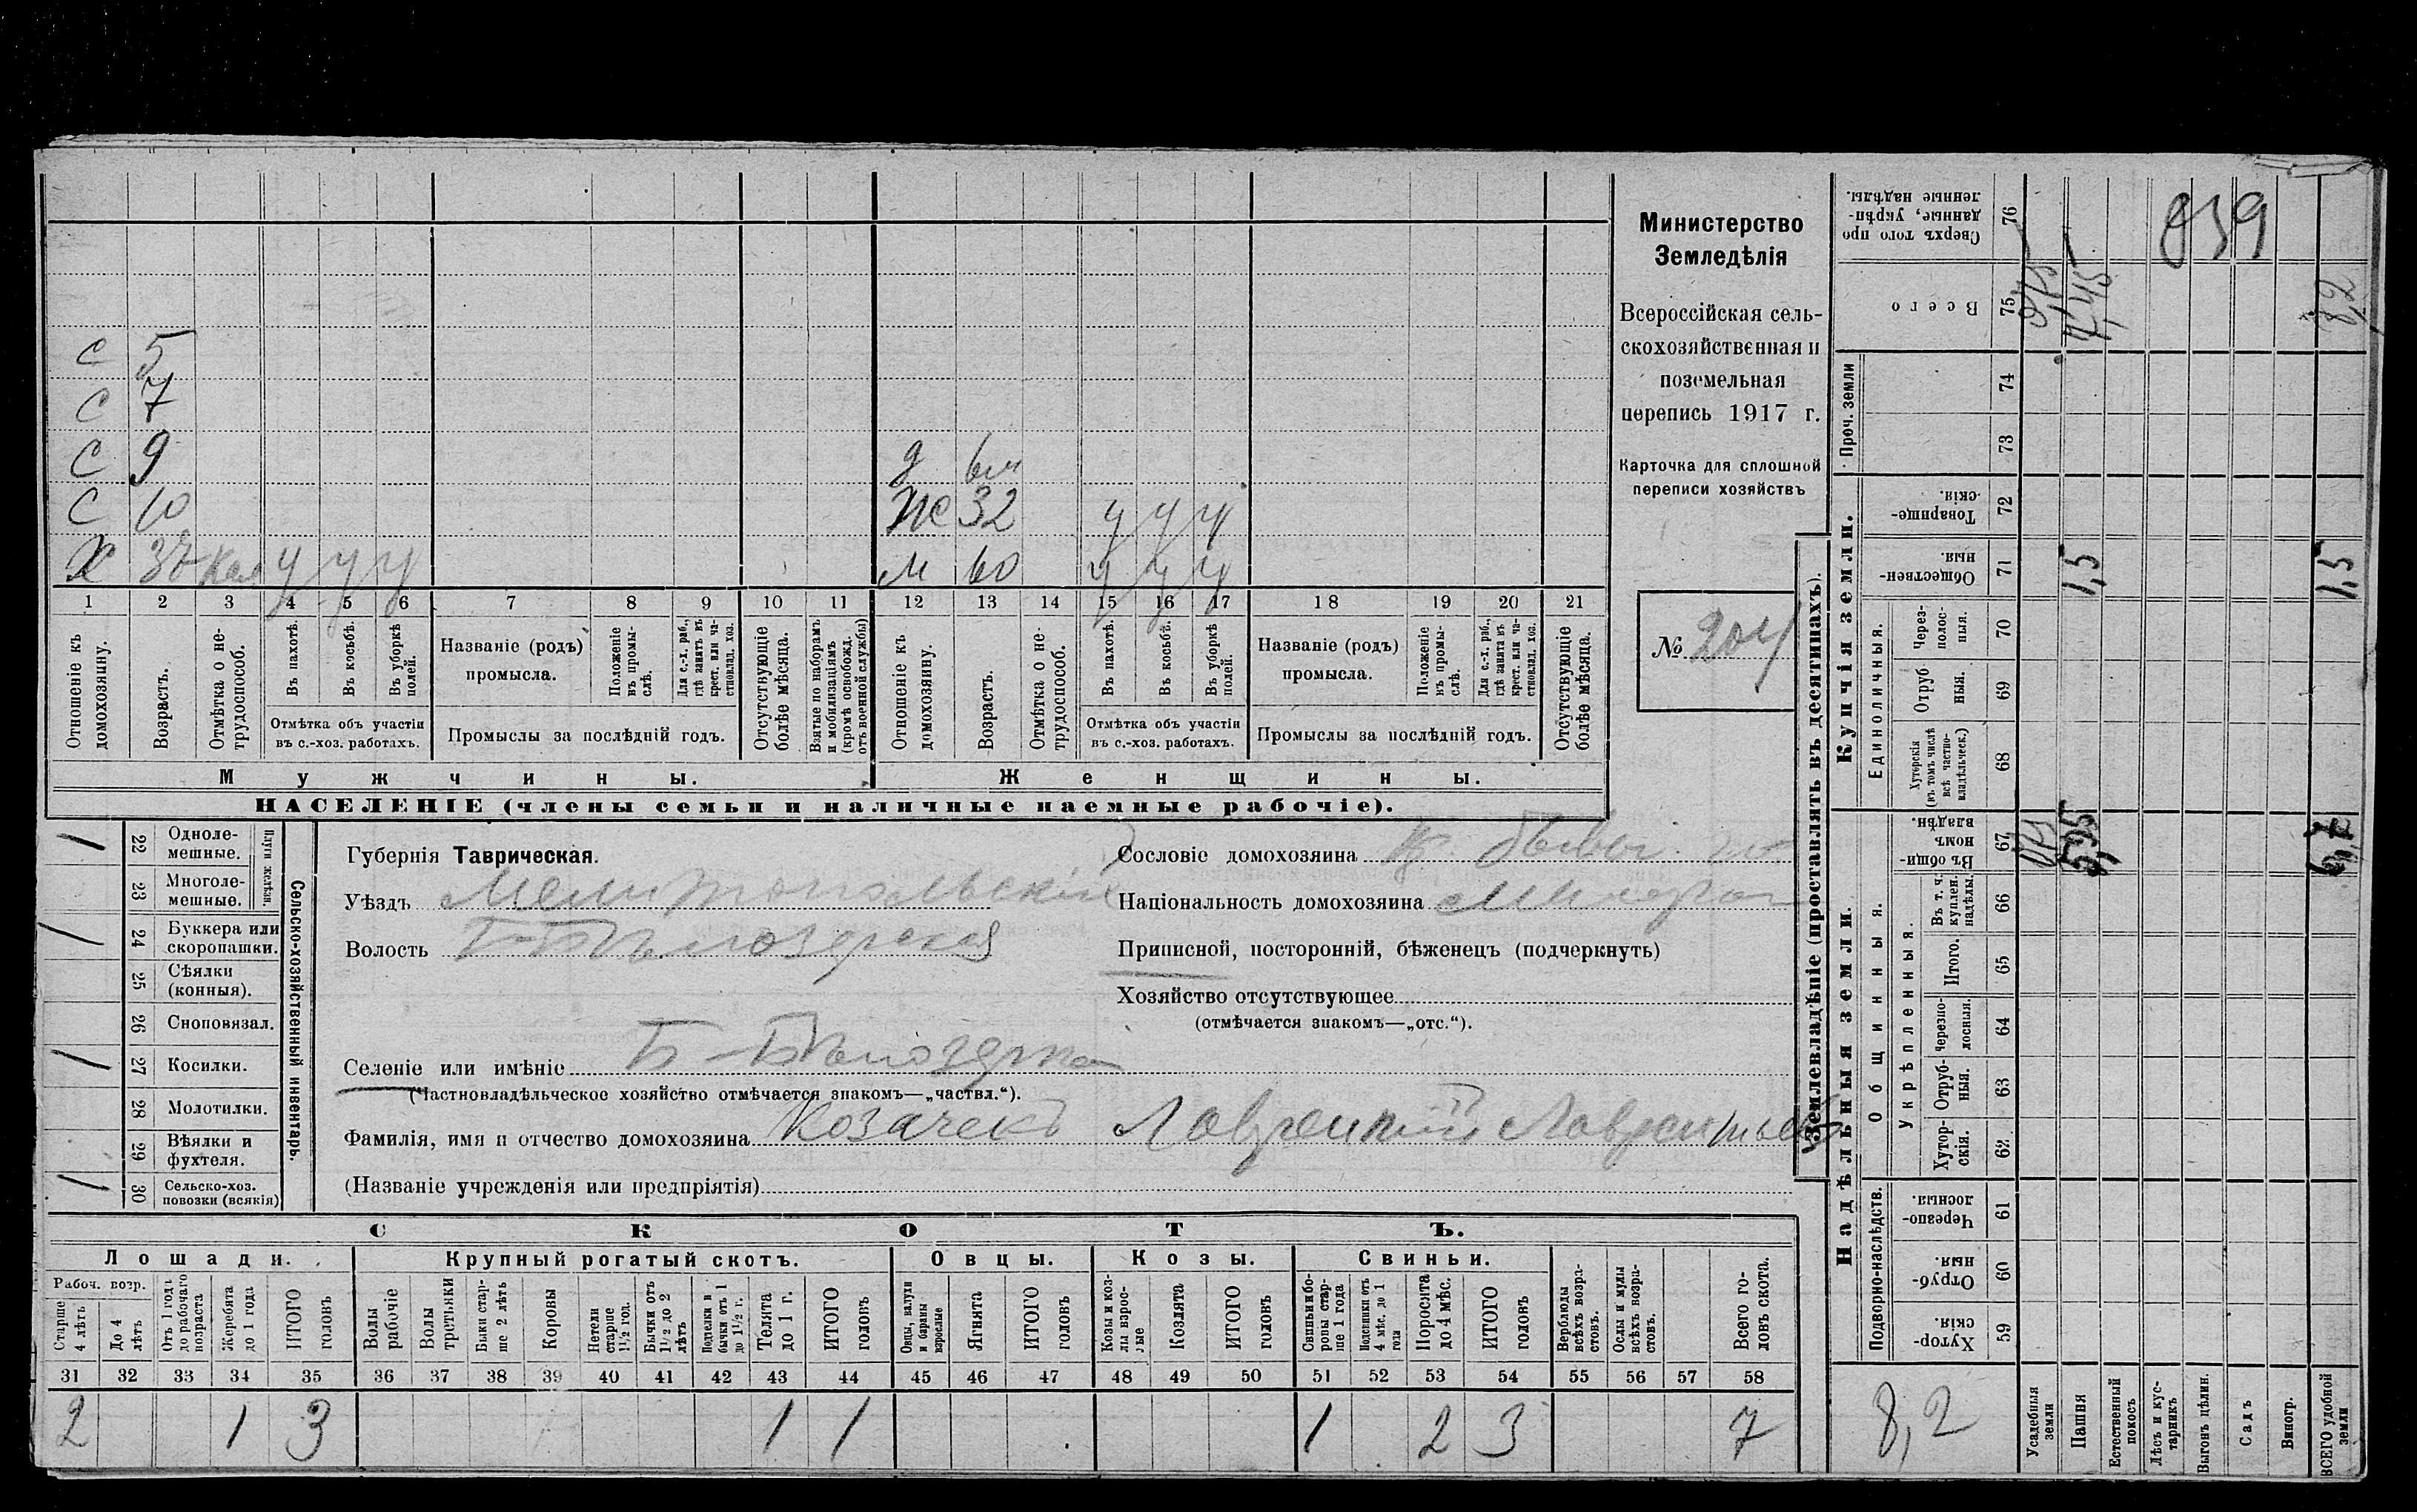 С 5
С 7
С 9 д 6 м
С 10 Ж 32 у у у
Х 37 у у у М 60 у у у
1 2 3 4 5 6 7 8 9 10 11 12 13 14 15 16 17 18 19 20 21
Отношеніе къ домохозяину.
Возрастъ.
Отмѣтка о не-трудоспособ.
Въ пахотѣ.
Въ косьбѣ.
Въ уборкѣ полей.
Отмѣтка объ участіи въ с.-хоз. работахъ.
Названіе (родъ) промысла.
Положеніе въ промы-слѣ.
Для с.-х. раб., гдѣ занятъ въ крест. или ча-стновлад. хоз.
Промыслы за послѣдній годъ.
Отсутствующіе болѣе мѣсяца.
Взятые по наборамъ и мобилизаціямъ (кромѣ освобожд. отъ военной службы)
Отношеніе къ домохозяину.
Возрастъ.
Отмѣтка о не-трудоспособ.
Въ пахотѣ.
Въ косьбѣ.
Въ уборкѣ полей.
Отмѣтка объ участіи въ с.-хоз. работахъ.
Названіе (родъ) промысла.
Положеніе въ промы-слѣ.
Для с.-х. раб., гдѣ занята въ крест. или ча-стновлад. хоз.
Промыслы за послѣдній годъ.
Отсутствующіе болѣе мѣсяца.
Мужчины. Женщины.
НАСЕЛЕНІЕ (члены семьи и наличные наемные рабочіе).
Министерство
Земледѣлія
Всероссійская сель-
скохозяйственная и
поземельная
перепись 1917 г.
Карточка для сплошной
переписи хозяйствъ
№ 204
Плуги желѣзн.
22 Одноле-мешные. /
23 Многоле-мешные.
24 Буккера или скоропашки. /
25 Сѣялки (конныя).
26 Сноповязал.
27 Косилки. /
28 Молотилки.
29 Вѣялки и фухтеля.
30 Сельско-хоз. повозки (всякія) /
Сельско-хозяйственный инвентарь.
Губернія Таврическая.
Уѣздъ Мелитопольскій
Волость Б-Бѣлозерская
Селеніе или имѣніе Б-Бѣлозерка
(Частновладѣльческое хозяйство отмѣчается знакомъ—„частвл.“).
Фамилія, имя и отчество домохозяина Козачекъ Лаврентій Лаврентьевъ
(Названіе учрежденія или предпріятія)
Сословіе домохозяина
Національность домохозяина Малорос
Приписной, посторонній, бѣженецъ (подчеркнуть)
Хозяйство отсутствующее
(отмѣчается знакомъ—„отс.“).
СКОТЪ.
Лошади. Крупный рогатый скотъ. Овцы. Козы. Свиньи.
Рабоч. возр.
Старше 4 лѣтъ
До 4 лѣтъ
Отъ 1 года до рабочаго возраста
Жеребята до 1 года
ИТОГО головъ
Волы рабочіе
Волы третьяки
Быки стар-ше 2 лѣтъ
Коровы
Нетели старше 1½ год.
Бычки отъ 1½ до 2 лѣтъ
Подтелки и бычки отъ 1 до 1½ г.
Телята до 1 г.
ИТОГО головъ
Овцы, валухи и бараны взрослые
Ягнята
ИТОГО головъ
Козы и коз-лы взрос-лые
Козлята
ИТОГО головъ
Свиньи и бо-ровы стар-ше 1 года
Подсвинки отъ 4 мѣс. до 1 года
Поросята до 4 мѣс.
ИТОГО головъ
Верблюды всѣхъ возра-стовъ.
Ослы и мулы всѣхъ возра-стовъ.
Всего го-ловъ скота.
31 32 33 34 35 36 37 38 39 40 41 42 43 44 45 46 47 48 49 50 51 52 53 54 55 56 57 58
2 1 3 1 1 1 2 3 7
Землевладѣніе (проставлять въ десятинахъ).
Сверхъ того про-данные, укрѣп-ленные надѣлы. 76
839
Всего 75 4,45 8,2
Проч. земли 74 73
Купчія земли.
Товарище-скія. 72
Обществен-ныя. 71 1,5 1,5
Единоличныя.
Через-полос-ныя. 70
Отруб-ныя. 69
Хуторскія (въ томъ числѣ всѣ частно-владѣльческ.) 68
Надѣльныя земли.
Общинныя.
Въ общи-номъ владѣн. 67 5,95 6,7
Укрѣпленныя.
Въ т. ч. куплен. надѣлы. 66
Итого. 65
Черезпо-лосныя. 64
Отруб-ныя. 63
Хутор-скія. 62
Подворно-наслѣдств.
Черезпо-лосныя. 61
Отруб-ныя. 60
Хутор-скія. 59
8,2
Усадебныя земли
Пашня
Естественный покосъ
Лѣсъ и кус-тарникъ
Выгонъ цѣлин.
Садъ
Виногр.
ВСЕГО удобной земли